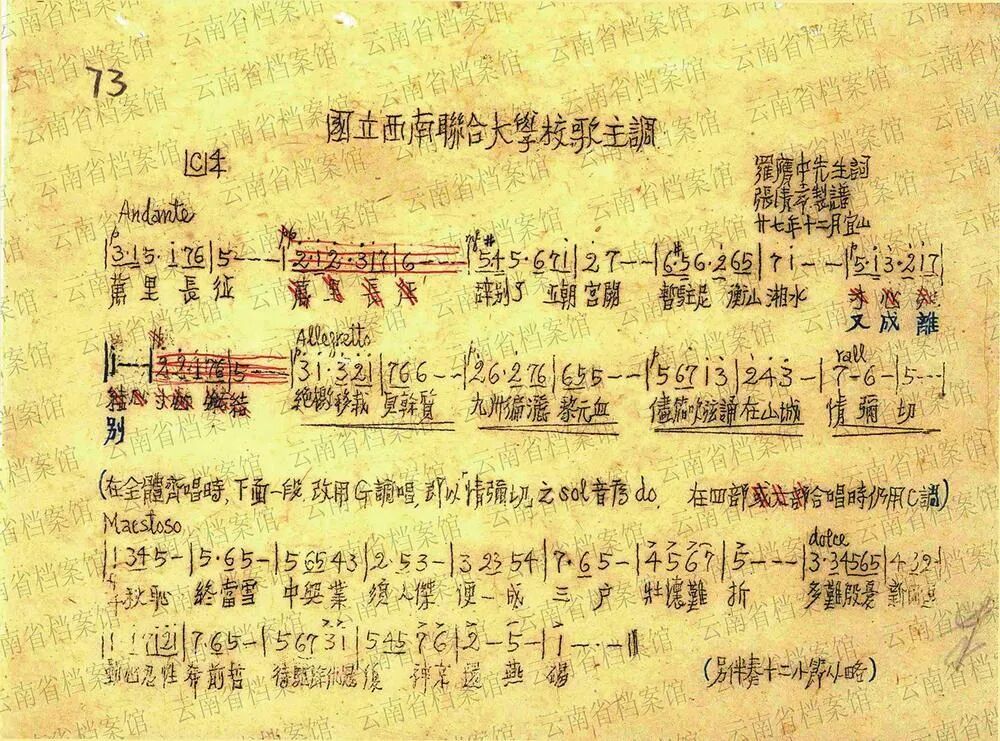 73
國立西南聯合大學校歌主調
C 4
羅膺中先生詞
張清常製譜
廿七年十二月宜山
Andante
3·15·176|5---|2·12·317|6---|545·671|27--|6·56·265|71--|5·13·217|
萬里長征 萬里長征 辞別了 五朝宮闕 暫駐足 衡山湘水
又成離
Allegretto rall
1---|2·2176|5---|31·321|766--|26·276|655--|56713|243-|7-6-|5---|
絕徼移栽 貞榦質 九州徧灑 黎元血 儘笳吹弦誦在山城 情彌切
別
(在全體齊唱時,下面一段,改用G調唱,即以「情彌切」之sol音為do. 在四部或二部合唱時仍用C調)
Maestoso dolce
1345-|5·65-|56543|2·53-|32354|7·65-|4567|5---|3·34565|432-|
千秋恥 終當雪 中興業 須人傑 便一成 三户 壯懷難折 多難殷憂
1·17121|7·65-|56731|54576|2-5-|1---||
動心忍性希前哲 待驅除仇寇復 神京還燕碣
(另伴奏十二小節从略)
云南省档案馆